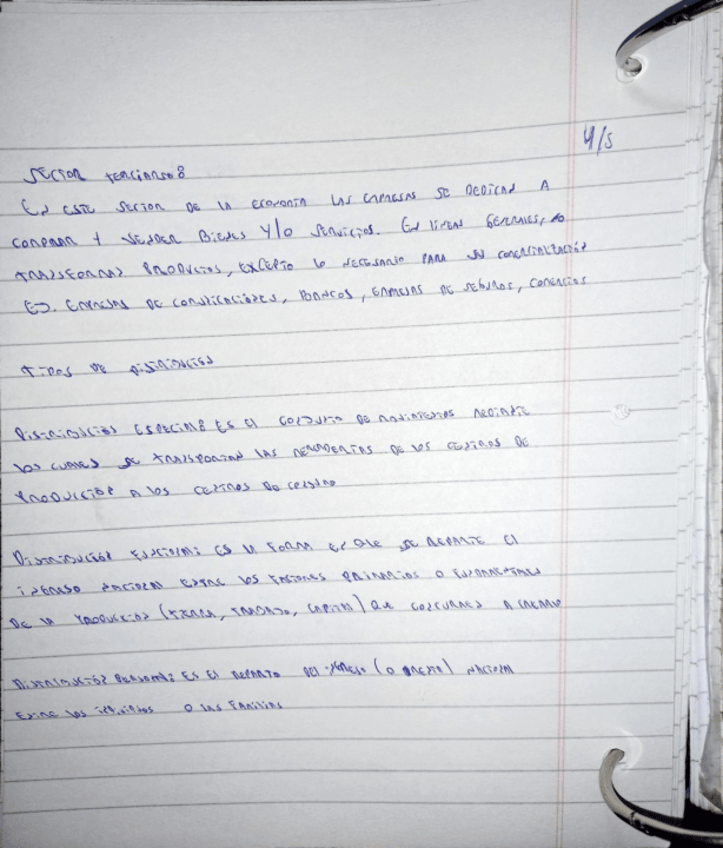 4/5
Sector terciario:
En este sector de la economía las empresas se dedican a
comprar y vender bienes y/o servicios. En líneas generales, no
transforman productos, excepto lo necesario para su comercialización
Ej. Empresas de comunicaciones, bancos, empresas de seguros, comercios
Tipos de distribución
Distribución espacial: es el conjunto de movimientos mediante
los cuales se transportan las mercaderías de los centros de
producción a los centros de consumo
Distribución funcional: es la forma en que se reparte el
ingreso nacional entre los factores primarios o fundamentales
de la producción (tierra, trabajo, capital) que concurren a crearlo
Distribución personal: es el reparto del ingreso (o renta) nacional
entre los individuos o las familias